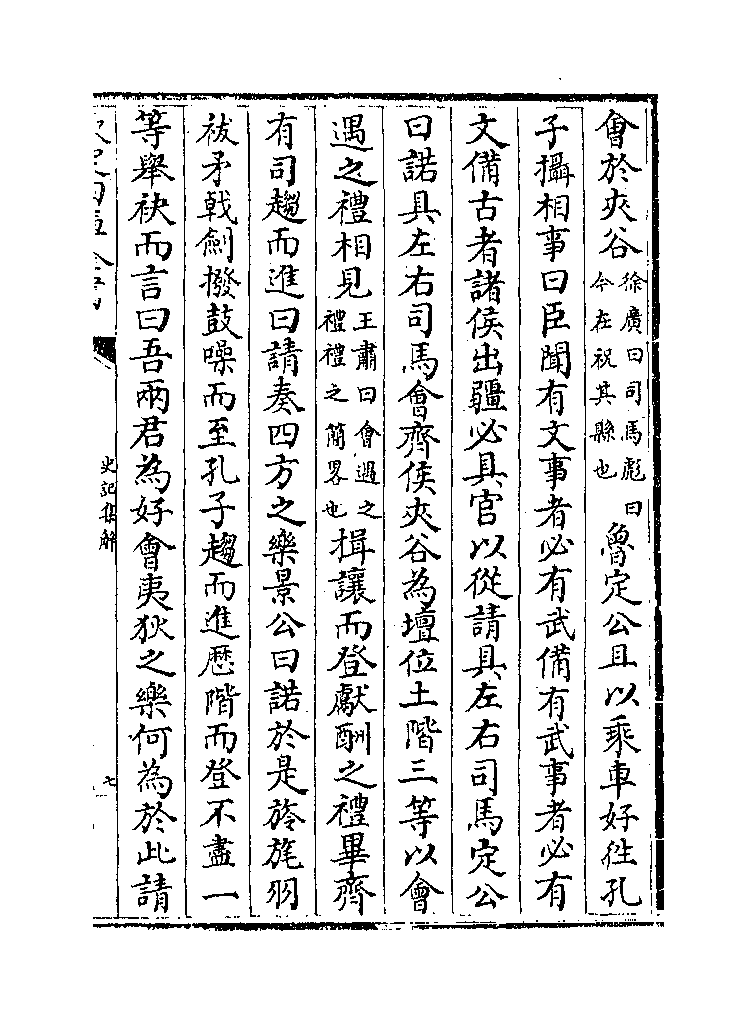 會於夾谷徐廣曰司馬彪曰今在祝其縣也魯定公且以乘車好徃孔
子攝相事曰臣聞有文事者必有武備有武事者必有
文備古者諸侯出疆必具官以從請具左右司馬定公
曰諾具左右司馬會齊侯夾谷為壇位土階三等以會
遇之禮相見王肅曰會遇之禮禮之簡畧也揖讓而登獻酬之禮畢齊
有司趨而進曰請奏四方之樂景公曰諾於是旍旄羽
袚矛戟劍撥鼓噪而至孔子趨而進歷階而登不盡一
等舉袂而言曰吾兩君為好會夷狄之樂何為於此請
史記集解
七